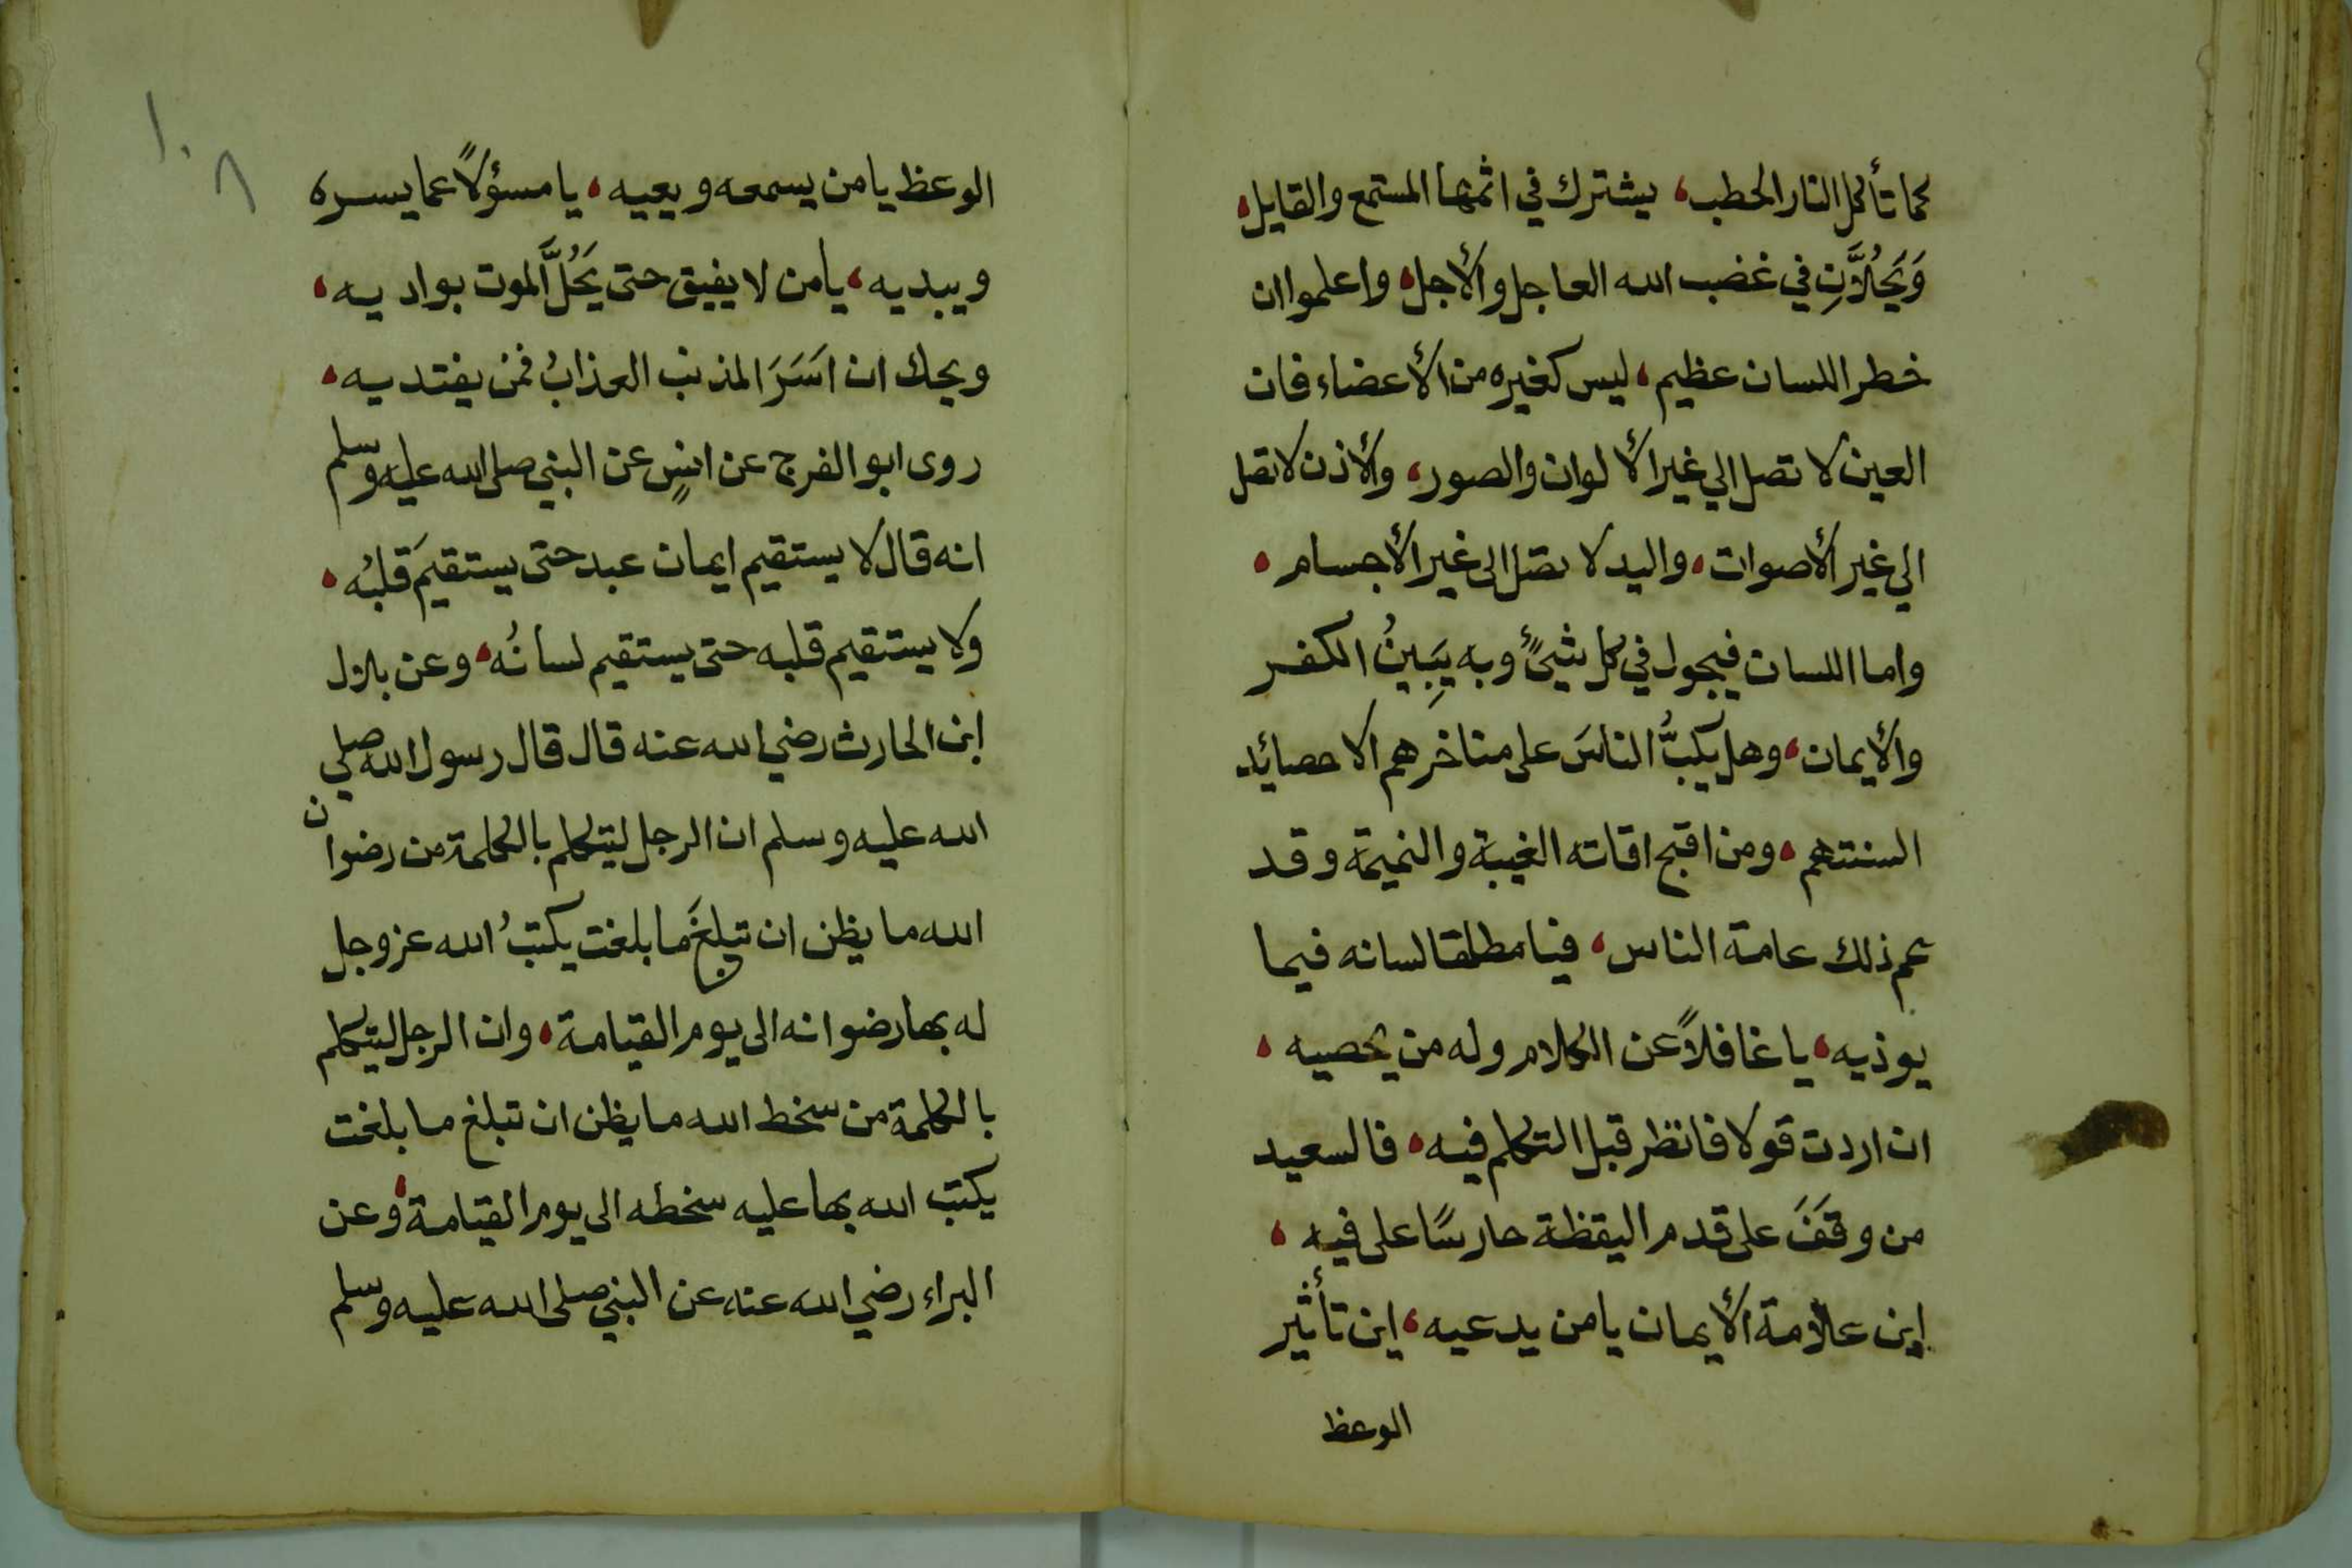 كما تأكل النار الحطب، يشترك في اثمها المستمع والقايل،
وَيَحُلاَّنِ في غضب الله العاجل والأجل، واعلموا ان
خطر اللسان عظيم، ليس كغيره من الأعضاء فان
العين لا تصل الي غير الألوان والصور، والأذن لا تصل
الي غير الأصوات، واليد لا تصل الى غير الأجسام،
واما اللسان فيجول في كل شيئٍ وبه يَبِينُ الكفر
والأيمان، وهل يكبُّ الناسَ على مناخرهم الا حصائد
السنتهم، ومن اقبح افاته الغيبة والنميمة وقد
عم ذلك عامة الناس، فيا مطلقا لسانه فيما
يوذيه، يا غافلاً عن الكلام وله من يحصيه،
ان اردت قولا فانظر قبل التكلم فيه، فالسعيد
من وقَفَ على قدم اليقظة حارسًا على فيه،
اين علامة الأيمان يا من يدعيه، اين تأثير
الوعظ
١٠٨
الوعظ يا من يسمعه ويعيه، يا مسؤلاً عما يسره
ويبديه، يا من لا يفيق حتى يَحُلَّ الموت بواديه،
ويحك ان اَسَرَ المذنب العذابُ فمن يفتديه،
روى ابو الفرج عن انسٍ عن النبي صلى الله عليه وسلم
انه قال لا يستقيم ايمان عبد حتى يستقيمَ قلبُه،
ولا يستقيم قلبه حتى يستقيم لسانُه، وعن بلال
ابن الحارث رضي الله عنه قال قال رسول الله صلي
الله عليه وسلم ان الرجل ليتكلم بالكلمة من رضوان
الله ما يظن ان تبلغَ ما بلغت يكتبُ الله عز وجل
له بها رضوانه الى يوم القيامة، وان الرجل ليتكلم
بالكلمة من سخط الله ما يظن ان تبلغ ما بلغت
يكتب الله بها عليه سخطه الى يوم القيامة، وعن
البراء رضي الله عنه عن النبي صلى الله عليه وسلم